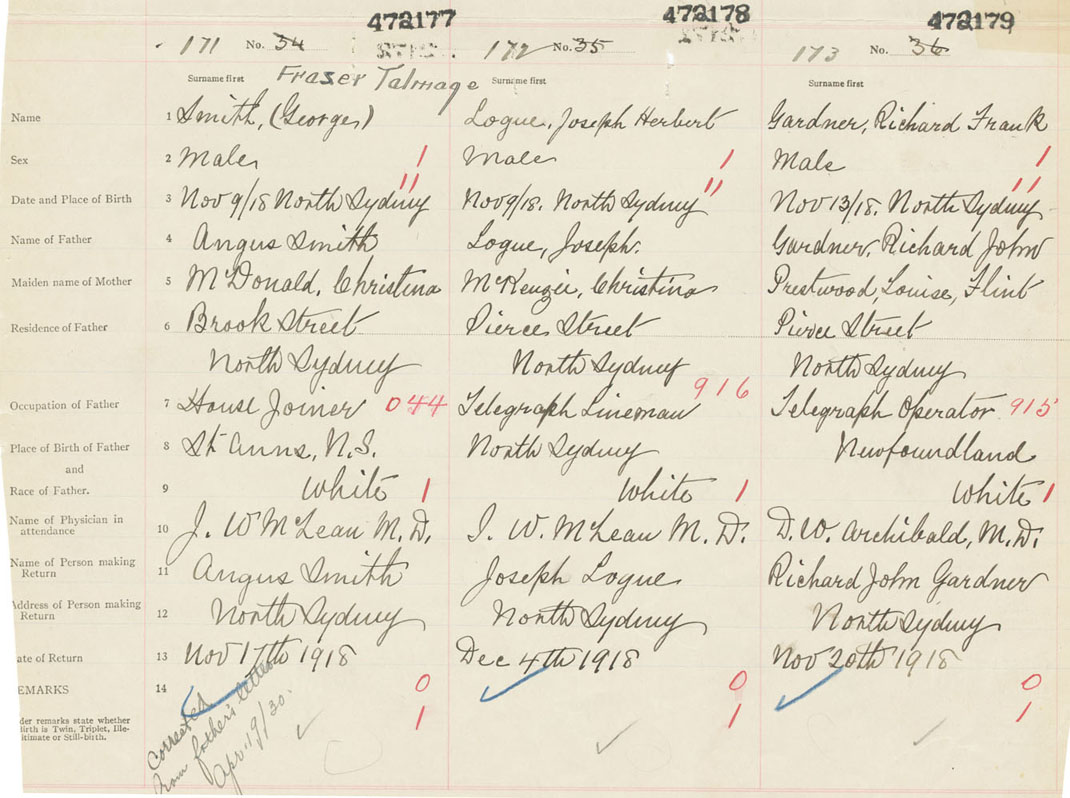 472177 472178 472179
171 No. 34 172 No. 35 173 No. 36
Surname first Fraser Talmage Surname first Surname first
Name 1 Smith, (George) Logue, Joseph Herbert Gardner, Richard Frank
Sex 2 Male 1 Male 1 Male 1
11 11 11
Date and Place of Birth 3 Nov 9/18 North Sydney Nov 9/18. North Sydney Nov 13/18. North Sydney
Name of Father 4 Angus Smith Logue, Joseph. Gardner, Richard John
Maiden name of Mother 5 McDonald, Christina McKenzie, Christina Prestwood, Louise, Flint
Residence of Father 6 Brook Street Pierce Street Pierce Street
North Sydney North Sydney North Sydney
Occupation of Father 7 House Joiner 044 Telegraph Lineman 916 Telegraph Operator 915
Place of Birth of Father 8 St Anns, N.S. North Sydney Newfoundland
and
Race of Father. 9 White 1 White 1 White 1
Name of Physician in
attendance 10 J. W McLean M.D. J. W. McLean M.D. D.W. Archibald, M.D.
Name of Person making
Return 11 Angus Smith Joseph Logue Richard John Gardner
Address of Person making
Return 12 North Sydney North Sydney North Sydney
ate of Return 13 Nov 17th 1918 Dec 4th 1918 Nov 20th 1918
EMARKS 14 0 0 0
der remarks state whether 1 1 1
irth is Twin, Triplet, Ille-
itimate or Still-birth.
Corrected
from father's letter
Apr 19/30.